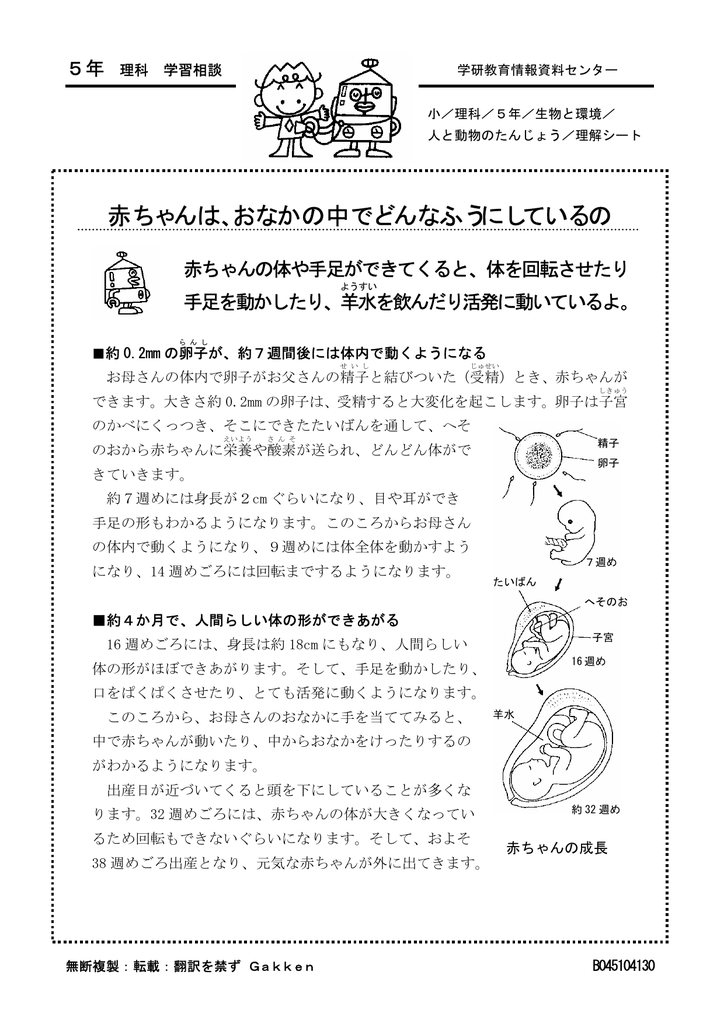 ５年 理科 学習相談
学研教育情報資料センター
小／理科／５年／生物と環境／
人と動物のたんじょう／理解シート
赤ちゃんは、おなかの中でどんなふうにしているの
赤ちゃんの体や手足ができてくると、体を回転させたり
ようすい
手足を動かしたり、羊水を飲んだり活発に動いているよ。
らんし
■約0.2mmの卵子が、約７週間後には体内で動くようになる
せいし じゅせい
お母さんの体内で卵子がお父さんの精子と結びついた（受精）とき、赤ちゃんが
しきゅう
できます。大きさ約0.2mmの卵子は、受精すると大変化を起こします。卵子は子宮
のかべにくっつき、そこにできたたいばんを通して、へそ
えいよう さんそ
のおから赤ちゃんに栄養や酸素が送られ、どんどん体がで
きていきます。
約７週めには身長が２cmぐらいになり、目や耳ができ
手足の形もわかるようになります。このころからお母さん
の体内で動くようになり、９週めには体全体を動かすよう
になり、14週めごろには回転までするようになります。
■約４か月で、人間らしい体の形ができあがる
16週めごろには、身長は約18cmにもなり、人間らしい
体の形がほぼできあがります。そして、手足を動かしたり、
口をぱくぱくさせたり、とても活発に動くようになります。
このころから、お母さんのおなかに手を当ててみると、
中で赤ちゃんが動いたり、中からおなかをけったりするの
がわかるようになります。
出産日が近づいてくると頭を下にしていることが多くな
ります。32週めごろには、赤ちゃんの体が大きくなってい
るため回転もできないぐらいになります。そして、およそ
38週めごろ出産となり、元気な赤ちゃんが外に出てきます。
精子
卵子
７週め
たいばん
へそのお
子宮
16週め
羊水
約32週め
赤ちゃんの成長
無断複製：転載：翻訳を禁ず Ｇａｋｋｅｎ
B045104130